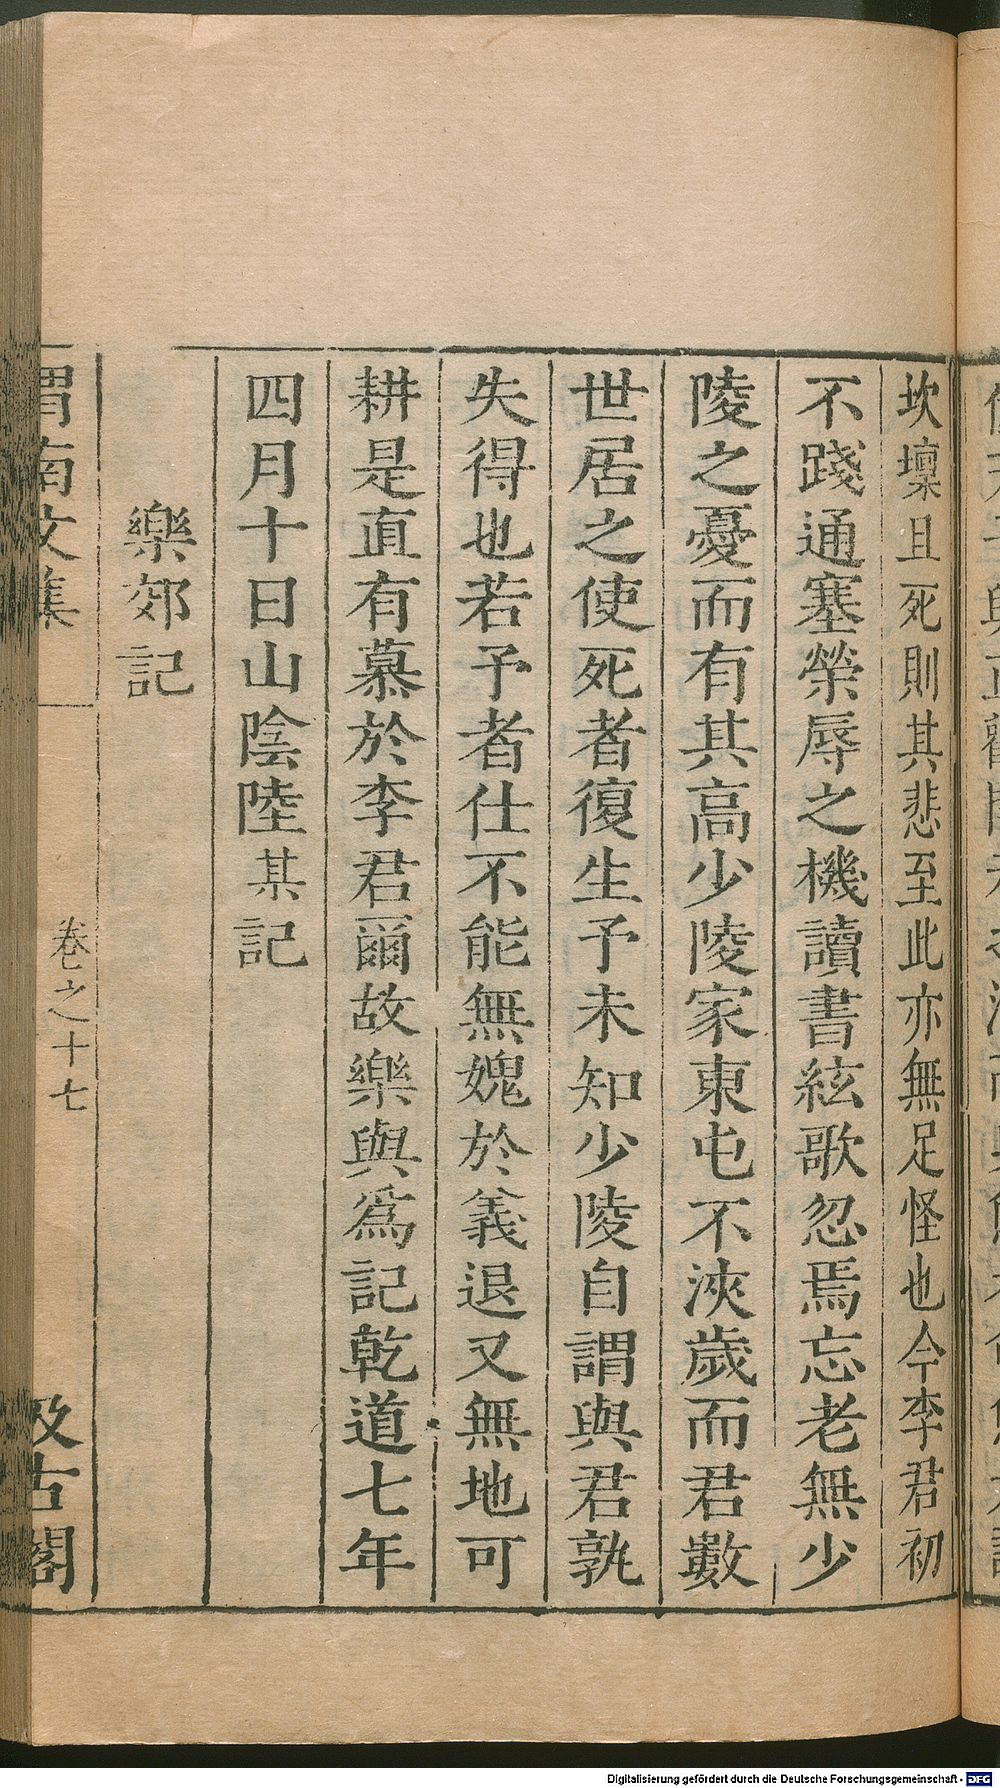 坎壈且死則其悲至此亦無足怪也今李君初
不踐通塞榮辱之機讀書絃歌忽焉忘老無少
陵之憂而有其高少陵家東屯不浹歲而君數
世居之使死者復生予未知少陵自謂與君孰
失得也若予者仕不能無媿於義退又無地可
耕是直有慕於李君爾故樂與爲記乾道七年
四月十日山陰陸某記
樂郊記
渭南文集
卷之十七
汲古閣
Digitalisierung gefördert durch die Deutsche Forschungsgemeinschaft - DFG